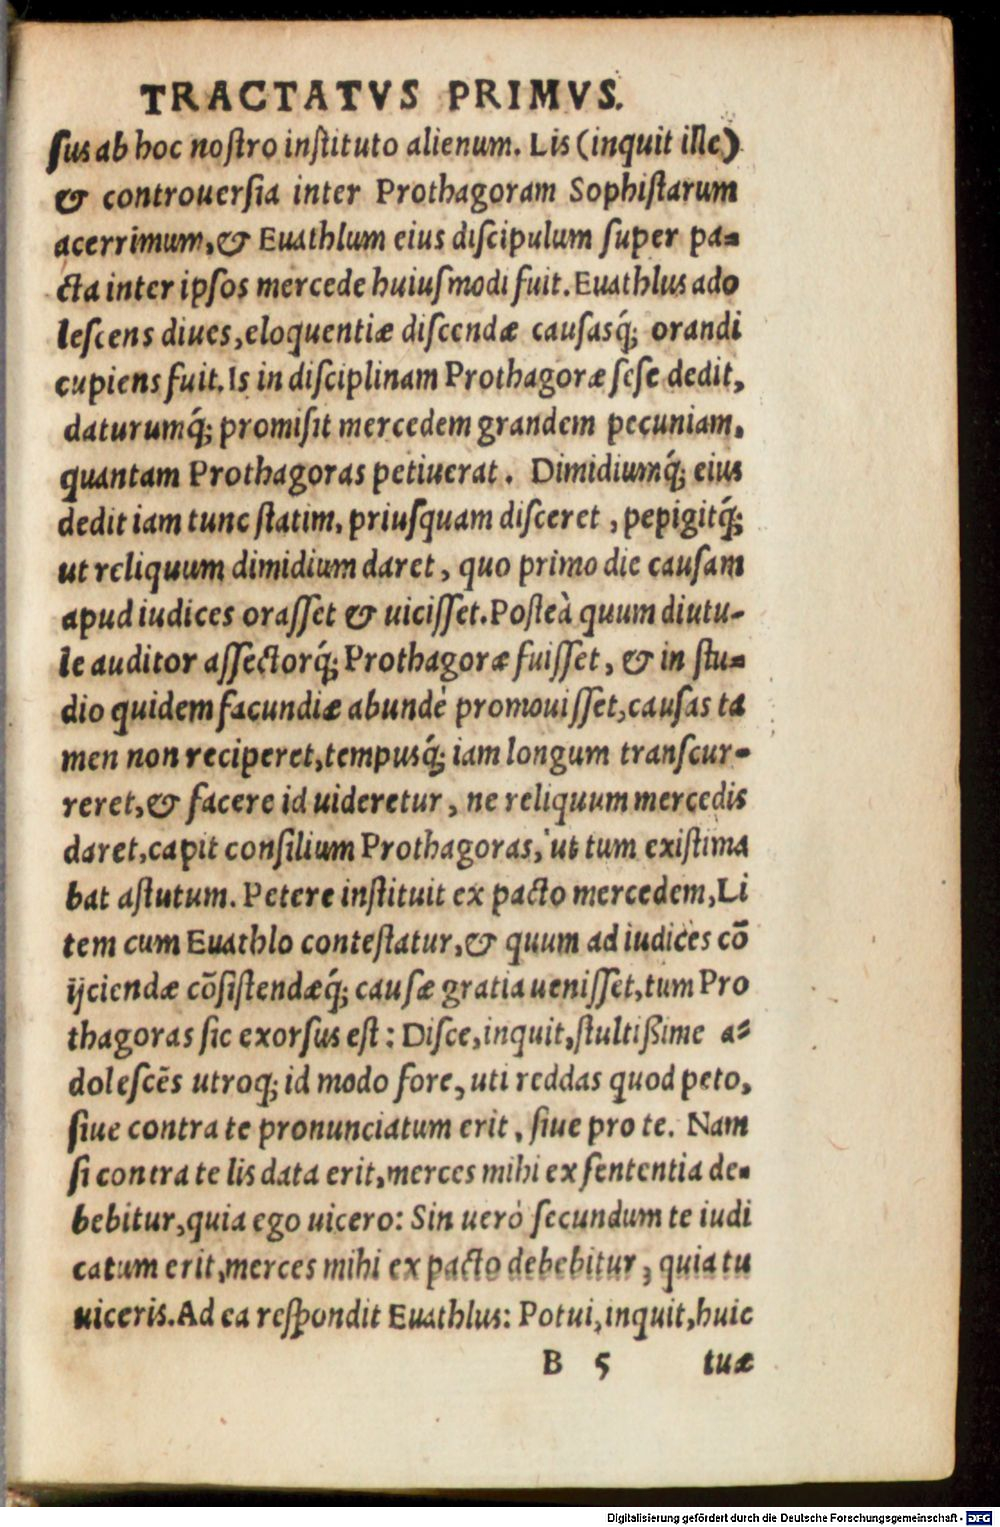 TRACTATVS PRIMVS.
ſus ab hoc noſtro inſtituto alienum. Lis (inquit ille)
& controuerſia inter Prothagoram Sophiſtarum
acerrimum, & Euathlum eius diſcipulum ſuper pa-
cta inter ipſos mercede huiuſmodi fuit. Euathlus ado
leſcens diues, eloquentiæ diſcendæ cauſasq́; orandi
cupiens fuit. Is in diſciplinam Prothagoræ ſeſe dedit,
daturumq́; promiſit mercedem grandem pecuniam,
quantam Prothagoras petiuerat. Dimidiumq́; eius
dedit iam tunc ſtatim, priuſquam diſceret, pepigitq́;
ut reliquum dimidium daret, quo primo die cauſam
apud iudices oraſſet & uiciſſet. Poſteà quum diutu-
le auditor aſſectorq́; Prothagoræ fuiſſet, & in ſtu-
dio quidem facundiæ abundè promouiſſet, cauſas ta
men non reciperet, tempusq́; iam longum tranſcur-
reret, & facere id uideretur, ne reliquum mercedis
daret, capit conſilium Prothagoras, ut tum exiſtima
bat aſtutum. Petere inſtituit ex pacto mercedem, Li
tem cum Euathlo conteſtatur, & quum ad iudices cō
ijciendæ cōſiſtendæq́; cauſæ gratia ueniſſet, tum Pro
thagoras ſic exorſus eſt: Diſce, inquit, ſtultißime a-
doleſcēs utroq; id modo fore, uti reddas quod peto,
ſiue contra te pronunciatum erit, ſiue pro te. Nam
ſi contra te lis data erit, merces mihi ex ſententia de-
bebitur, quia ego uicero: Sin uerò ſecundum te iudi
catum erit, merces mihi ex pacto debebitur, quia tu
uiceris. Ad ea reſpondit Euathlus: Potui, inquit, huic
B 5 tuæ
Digitalisierung gefördert durch die Deutsche Forschungsgemeinschaft - DFG